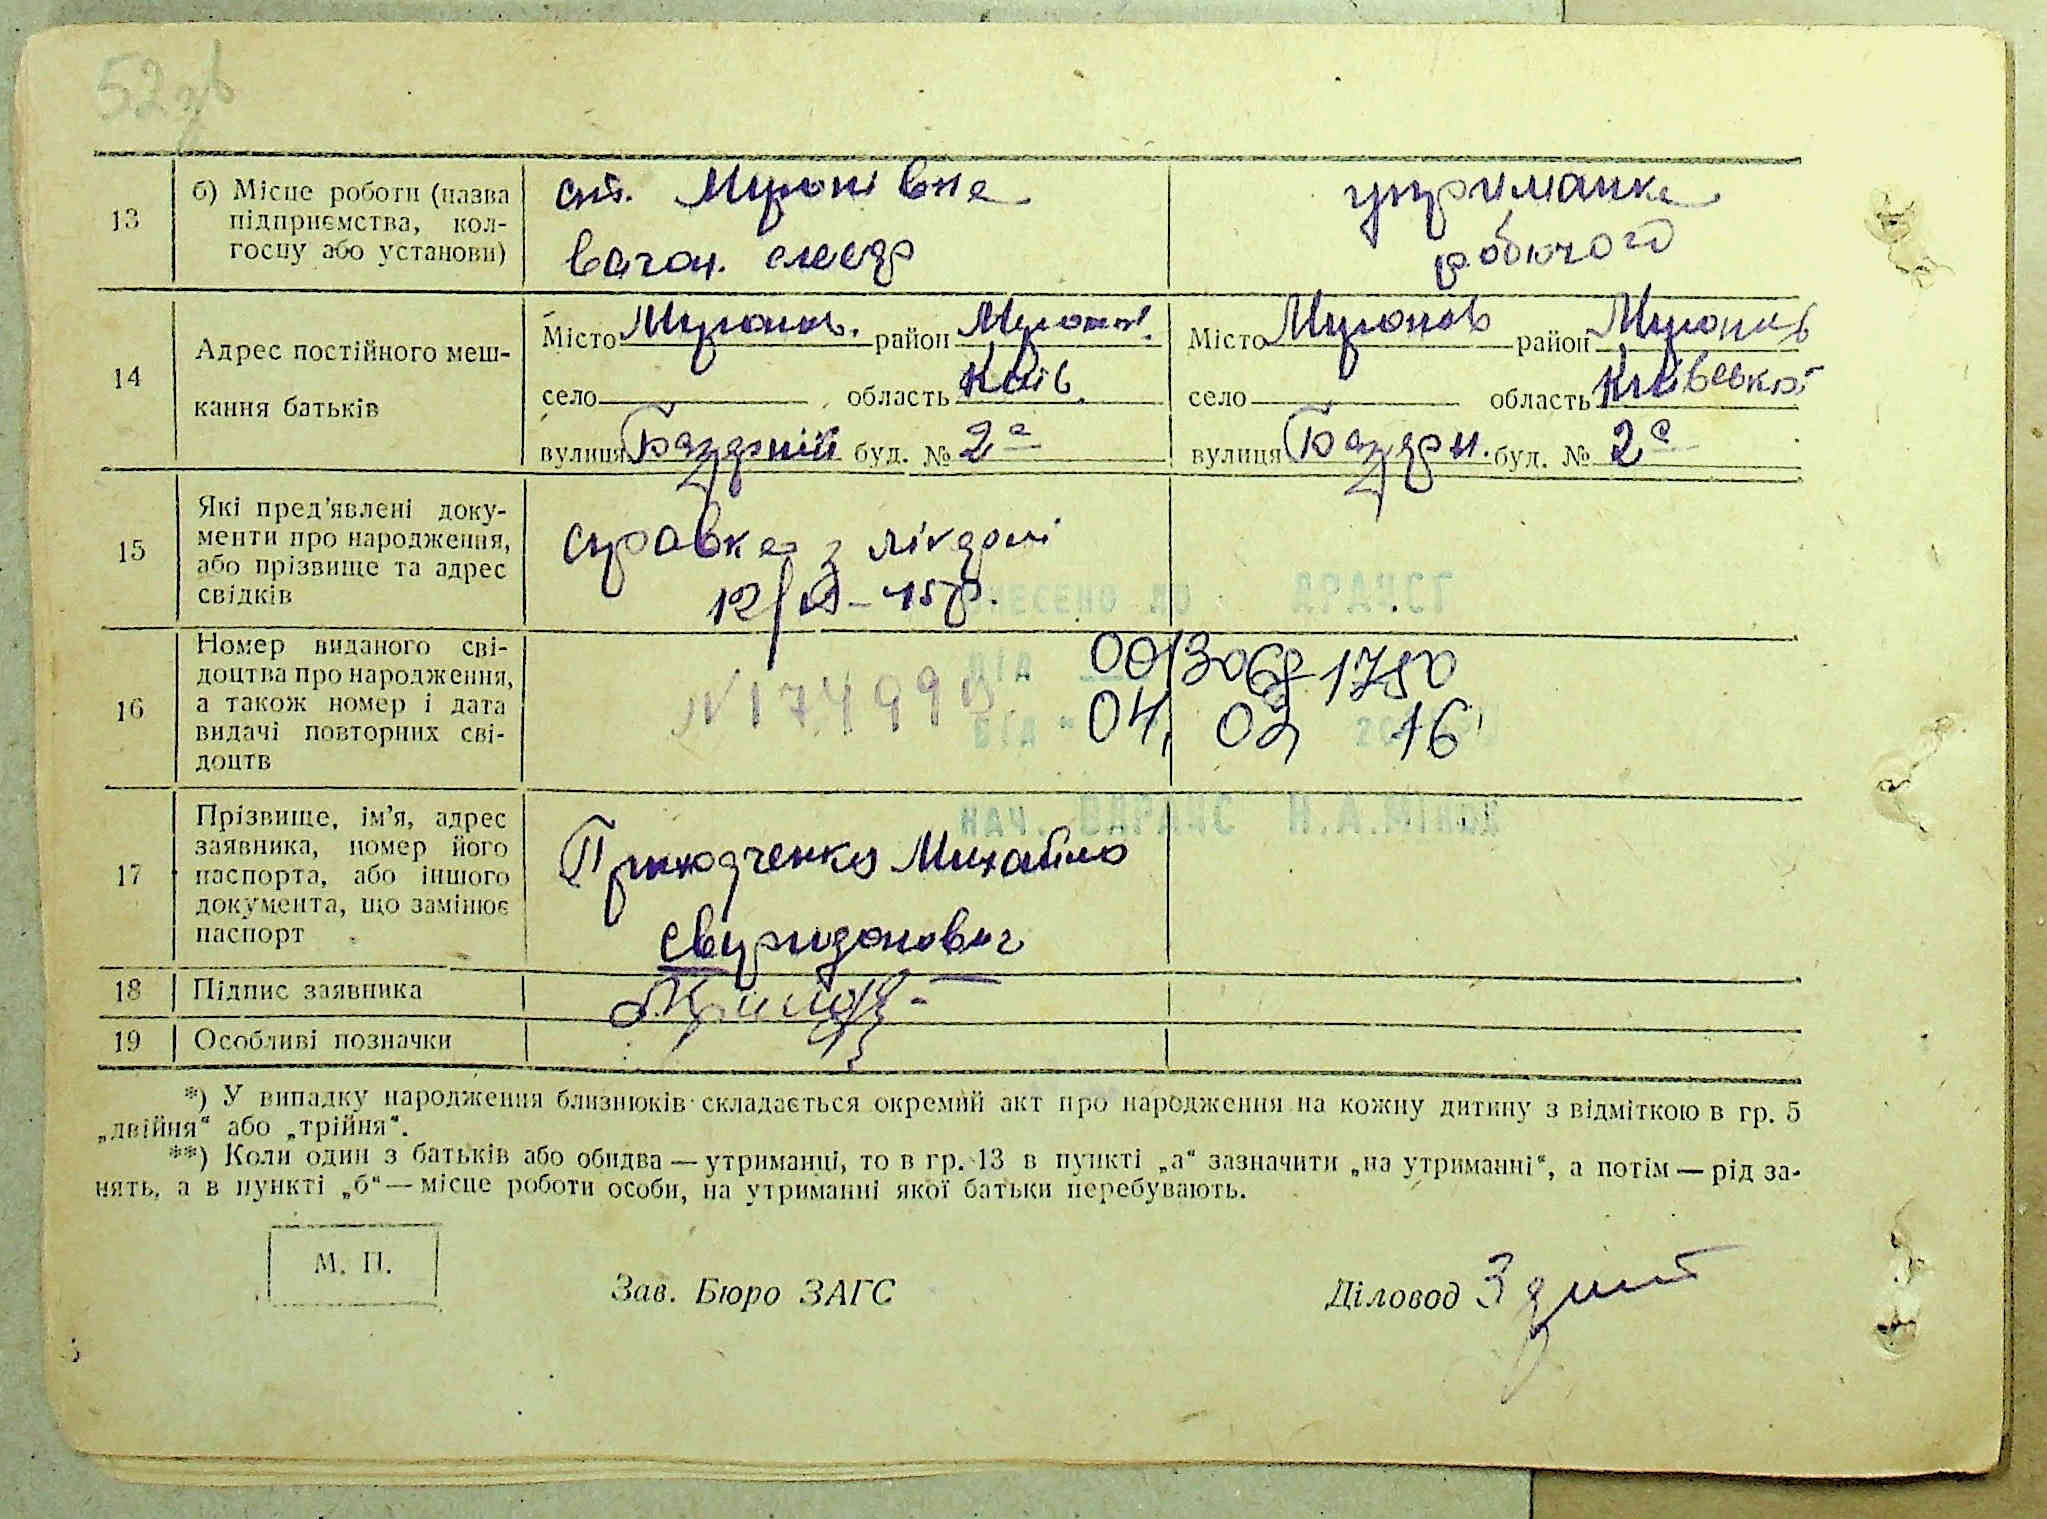 52 зв
13
б) Місце роботи (назва
підприємства, кол-
госпу або установи)
ст. Миронівка
вагон. слюсар
утриманка
робочого
14
Адрес постійного меш-
кання батьків
Місто Миронів. район Миронів.
село область Київ.
вулиця Базарній буд. № 2а
Місто Миронів район Миронів
село область Київської
вулиця Базарн. буд. № 2а
15
Які пред'явлені доку-
менти про народження,
або прізвище та адрес
свідків
справка з лікарні
12/IX–45р.
ВНЕСЕНО ДО ДРАЦСГ
16
Номер виданого сві-
доцтва про народження,
а також номер і дата
видачі повторних сві-
доцтв
ВІД "04. 02 2016
17
Прізвище, ім'я, адрес
заявника, номер його
паспорта, або іншого
документа, що замінює
паспорт
НАЧ. ВДРАЦС Н.А.
Приходченко Михайло
Свиридонович
18
Підпис заявника
19
Особливі позначки
*) У випадку народження близнюків складається окремий акт про народження на кожну дитину з відміткою в гр. 5
„двійня“ або „трійня“.
**) Коли один з батьків або обидва — утриманці, то в гр. 13 в пункті „а“ зазначити „на утриманні“, а потім — рід за-
нять, а в пункті „б“ — місце роботи особи, на утриманні якої батьки перебувають.
М. П.
Зав. Бюро ЗАГС
Діловод